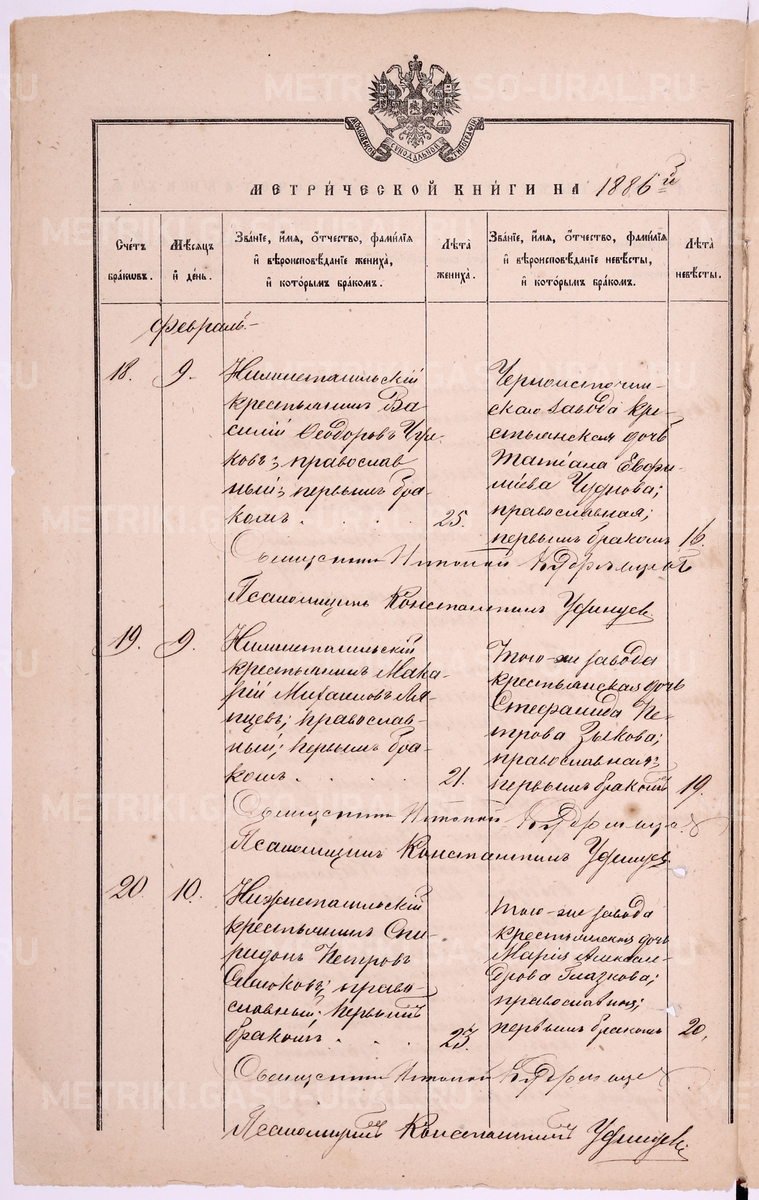 МОСКОВСКОЙ СѴНОДАЛЬНОЙ ТИПОГРАФІИ
МЕТРИ́ЧЕСКОЙ КНИ́ГИ НА 1886й
Счетъ браковъ.
Мѣсяцъ и день.
Зва́нїе, и́мѧ, ѻ҆́тчество, фами́лїѧ и҆ вѣроисповѣ́данїе жениха̀, и҆ кото́рымъ бра́комъ.
Лѣ́та жениха̀.
Зва́нїе, и҆́мѧ, ѻ҆́тчество, фами́лїѧ и҆ вѣроисповѣ́данїе невѣ́сты, и҆ кото́рымъ бра́комъ.
Лѣ́та невѣ́сты.
Февраль
18. 9. Нижнетагильскій
крестьянинъ Ва-
силій Ѳеодоровъ
ковъ; православ-
ный; первымъ бра-
комъ . . . . 25.
Черноисточин-
скаго завода кре-
стьянская дочь
Татіана Евфи-
міева Чуднова;
православная;
первымъ бракомъ 16.
Священникъ
Псаломщикъ Константинъ Уфинцев
19. 9. Нижнетагильскій
крестьянинъ Мака-
рій Михаиловъ Ля-
пцевъ; православ-
ный; первымъ бра-
комъ . . . . 21.
того-же завода
крестьянская дочь
Стефанида Пе-
трова Зыкова;
православная;
первымъ бракомъ 19.
Священникъ
Псаломщикъ Константинъ Уфинцев
20. 10. Нижнетагильскій
крестьянинъ Спи-
ридонъ Петровъ
право-
славный; первымъ
бракомъ . . . 23.
того-же завода
крестьянская дочь
Марія Алексан-
дрова Глазкова;
православная;
первымъ бракомъ 20.
Священникъ
Псаломщикъ Константинъ Уфинцев
METRIKI.GASO-URAL.RU